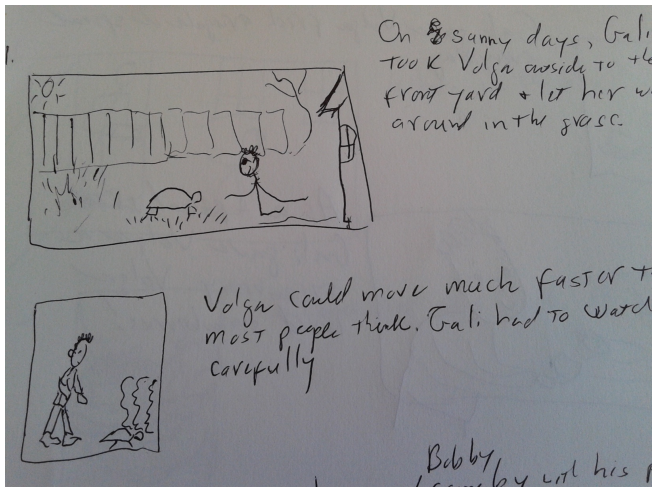 1.
On sunny days, Gali
took Volga outside to the
front yard & let her w
around in the grass.
Volga could move much faster t
most people think. Gali had to watch
carefully
Bobby,
by with his